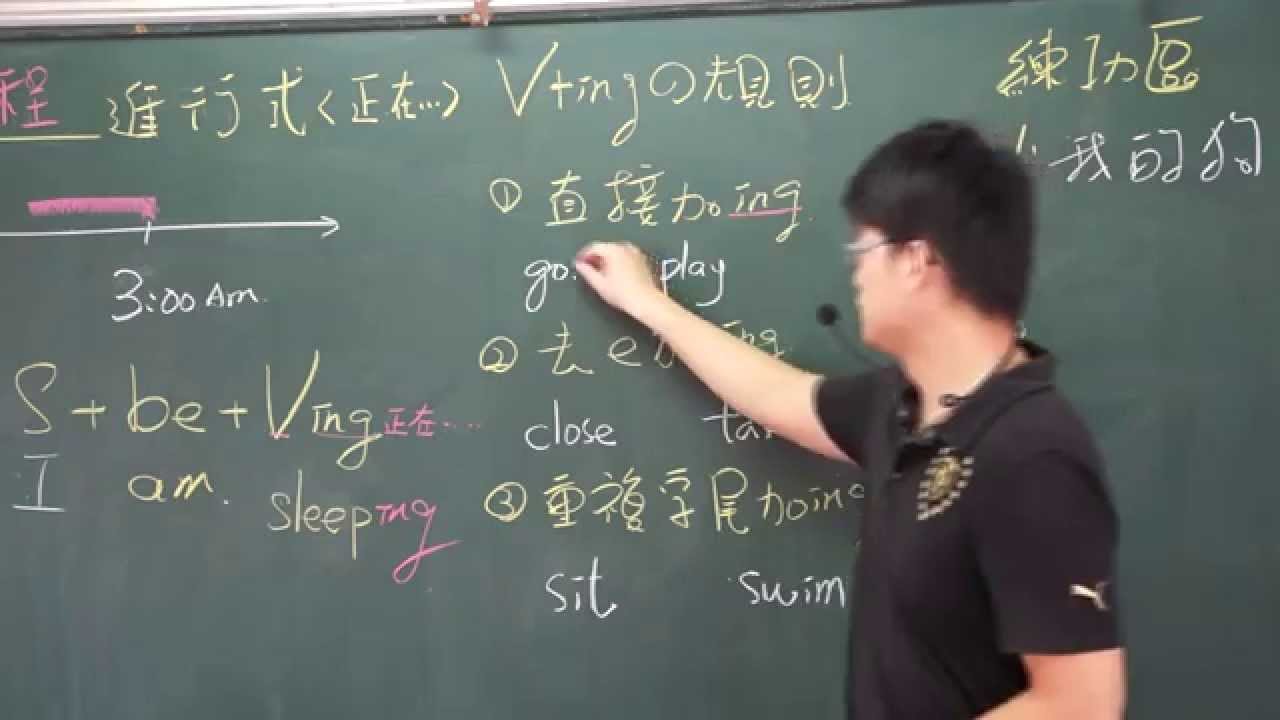 程 進行式〈正在…〉
3:00 Am.
S + be + Ving 正在…
I am. sleeping
V+ingの規則
① 直接加ing
go play
② 去e加ing
close
③ 重複字尾加ing
sit swim
練功區
我的狗